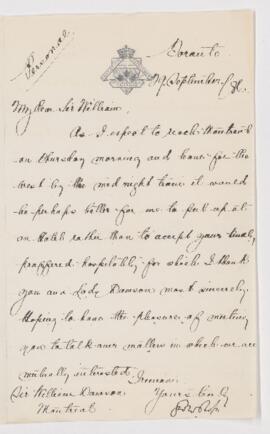 Personal
Toronto
September
My dear Sir William,
As I expect to reach Montreal
on Thursday morning and leave for the
West by the midnight train it would
be perhaps better for me to put up at
an Hotel rather than to accept your kindly
proffered hospitality for which I thank
you and Lady Dawson most sincerely.
Hoping to have the pleasure of meeting
you to talk over matters in which we are
mutually interested.
I remain
Sir William Dawson Yours truly
Montreal